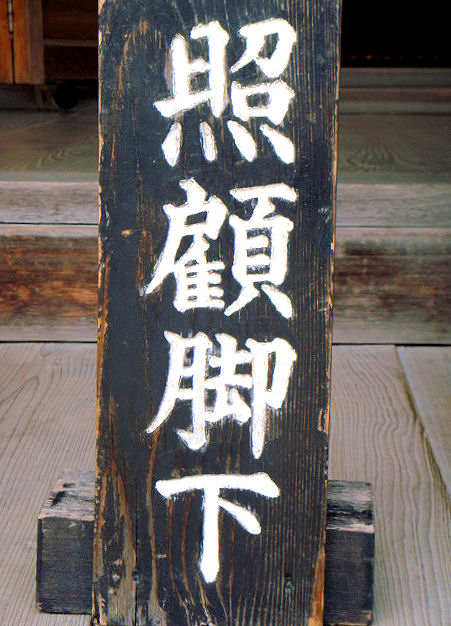 照顧脚下